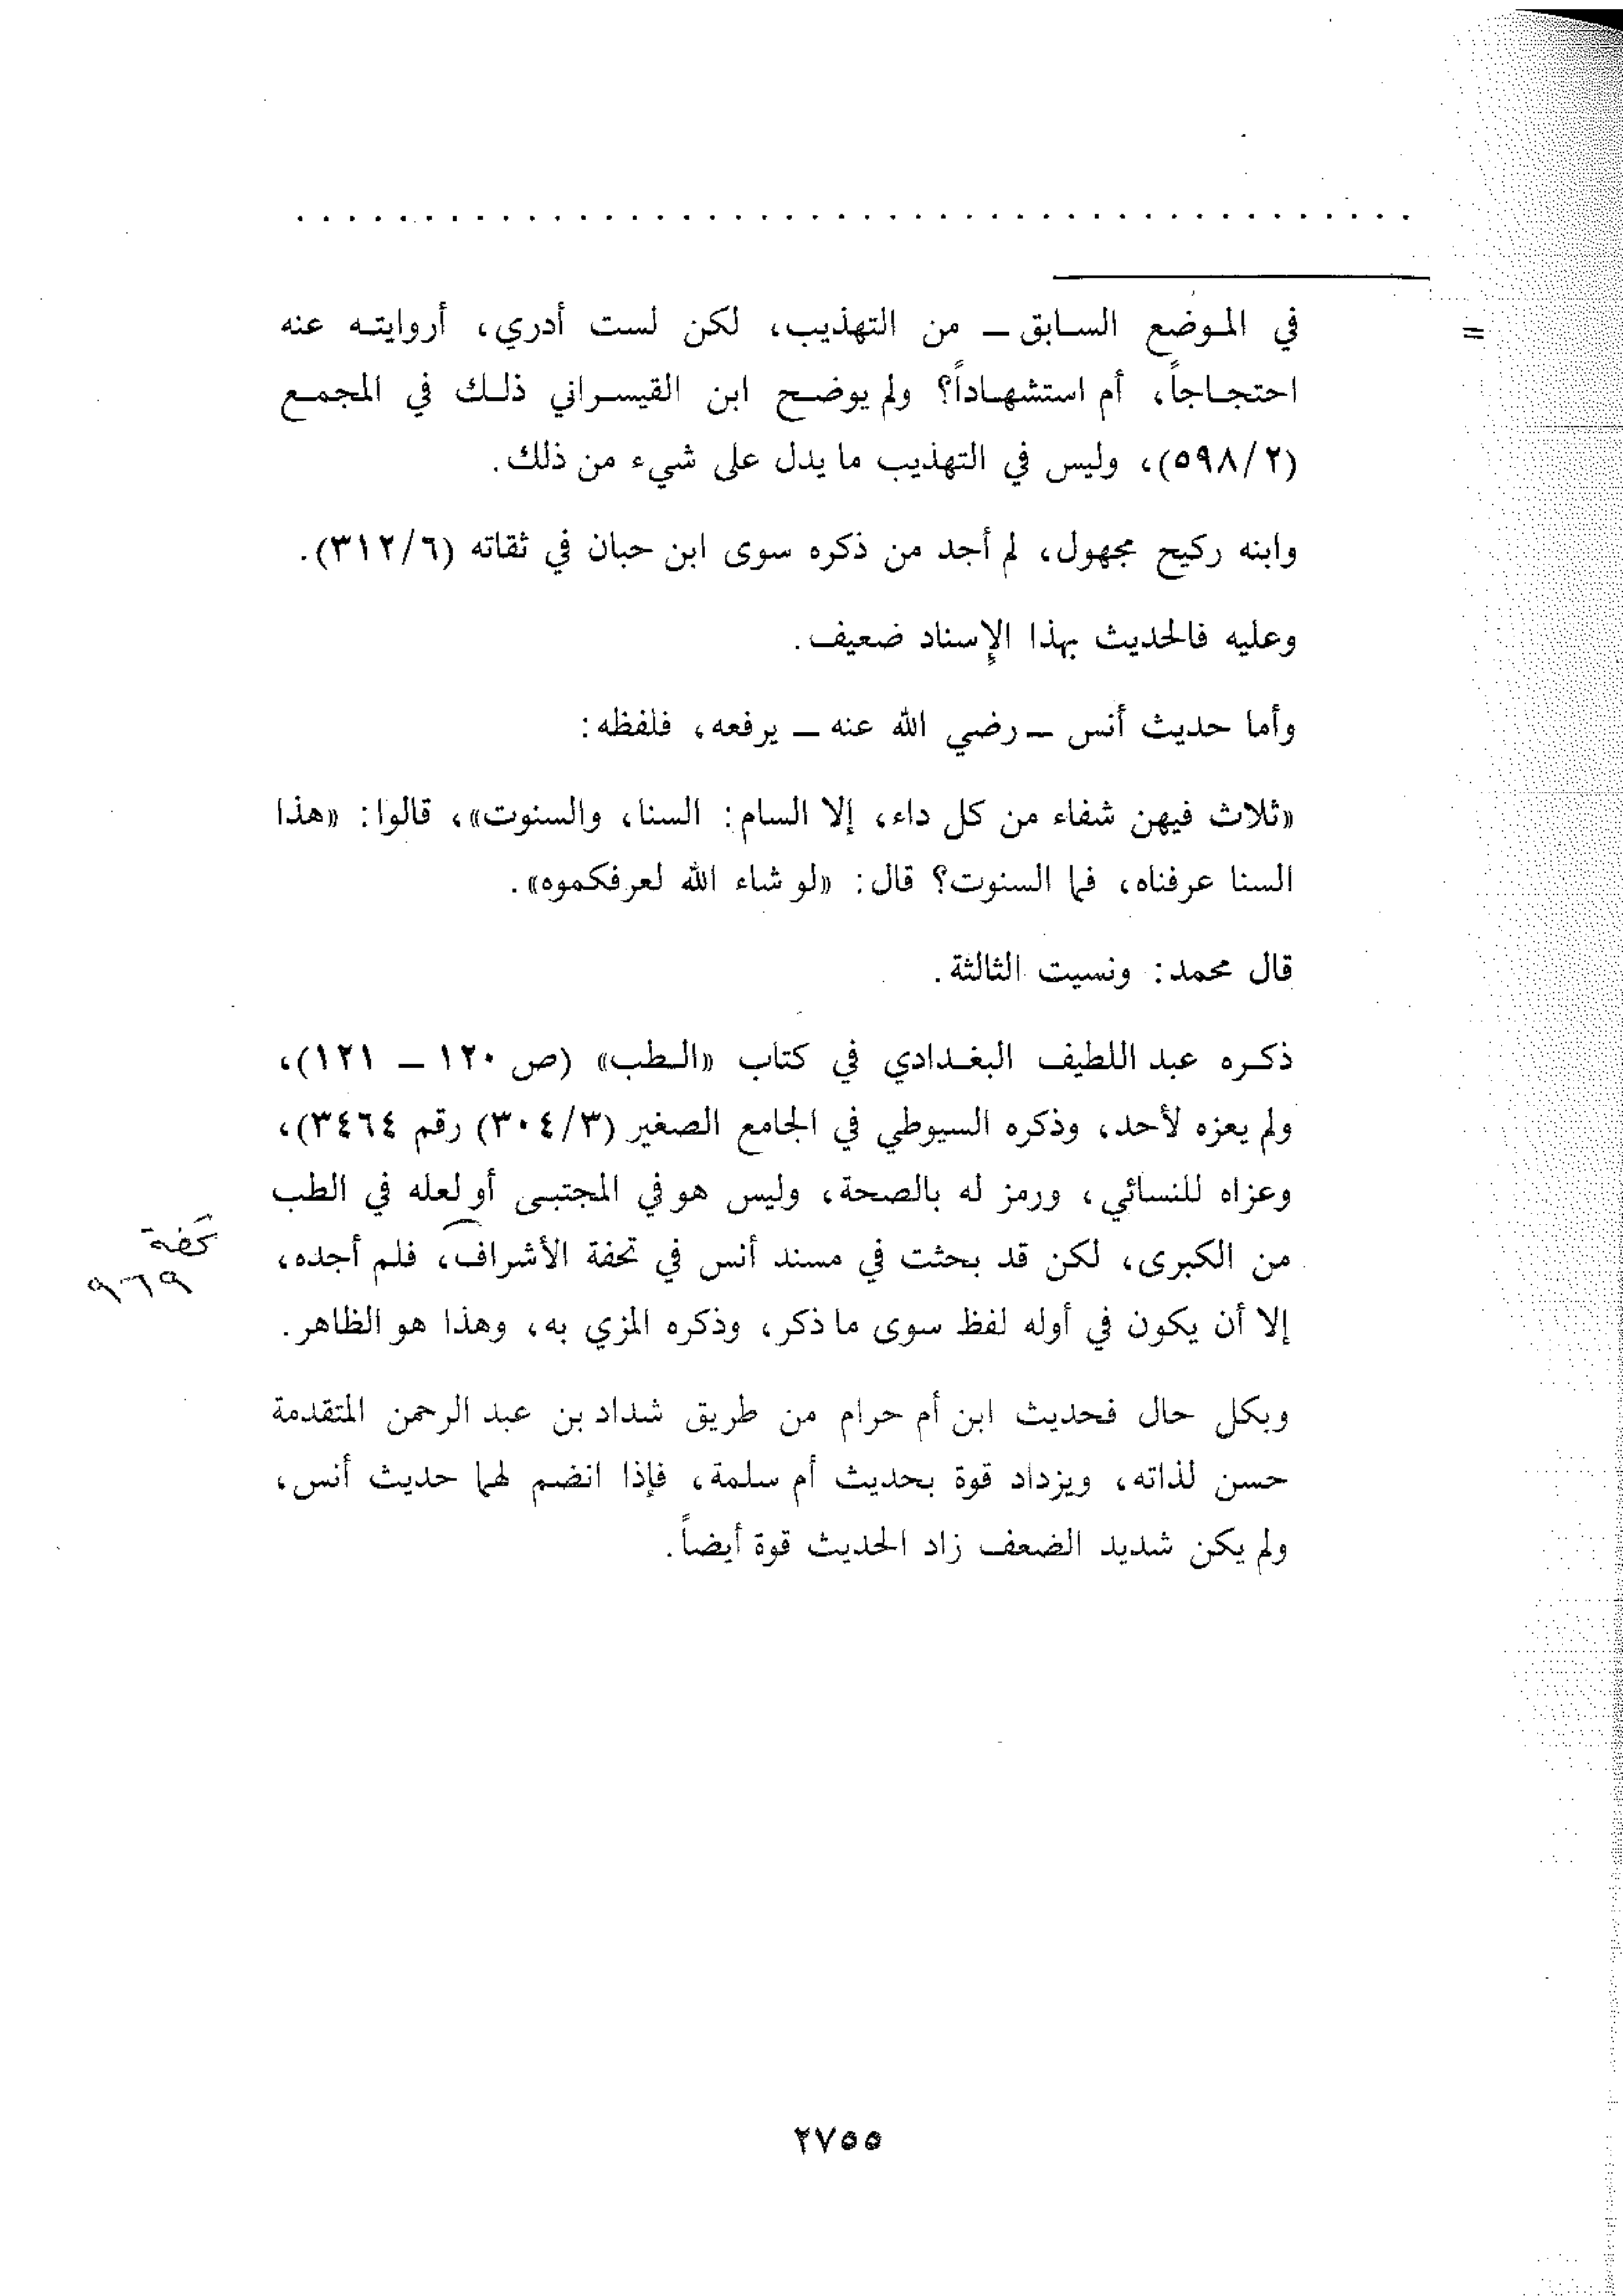 = في الموضع السابق ــ من التهذيب، لكن لست أدري، أروايته عنه
احتجاجاً، أم استشهاداً؟ ولم يوضح ابن القيسراني ذلك في المجمع
(٢/٥٩٨)، وليس في التهذيب ما يدل على شيء من ذلك.
وابنه ركيح مجهول، لم أجد من ذكره سوى ابن حبان في ثقاته (٦/٣١٢).
وعليه فالحديث بهذا الإسناد ضعيف.
وأما حديث أنس ــ رضي الله عنه ــ يرفعه، فلفظه:
«ثلاث فيهن شفاء من كل داء، إلا السام: السنا، والسنوت»، قالوا: «هذا
السنا عرفناه، فما السنوت؟ قال: «لو شاء الله لعرفكموه».
قال محمد: ونسيت الثالثة.
ذكره عبد اللطيف البغدادي في كتاب «الطب» (ص ١٢٠ ــ ١٢١)،
ولم يعزه لأحد، وذكره السيوطي في الجامع الصغير (٣/٣٠٤) رقم ٣٤٦٤)،
وعزاه للنسائي، ورمز له بالصحة، وليس هو في المجتبى أو لعله في الطب
من الكبرى، لكن قد بحثت في مسند أنس في تحفة الأشراف، فلم أجده،
إلا أن يكون في أوله لفظ سوى ما ذكر، وذكره المزي به، وهذا هو الظاهر.
وبكل حال فحديث ابن أم حرام من طريق شداد بن عبد الرحمن المتقدمة
حسن لذاته، ويزداد قوة بحديث أم سلمة، فإذا انضم لهما حديث أنس،
ولم يكن شديد الضعف زاد الحديث قوة أيضاً.
٩٦٩
٢٧٥٥